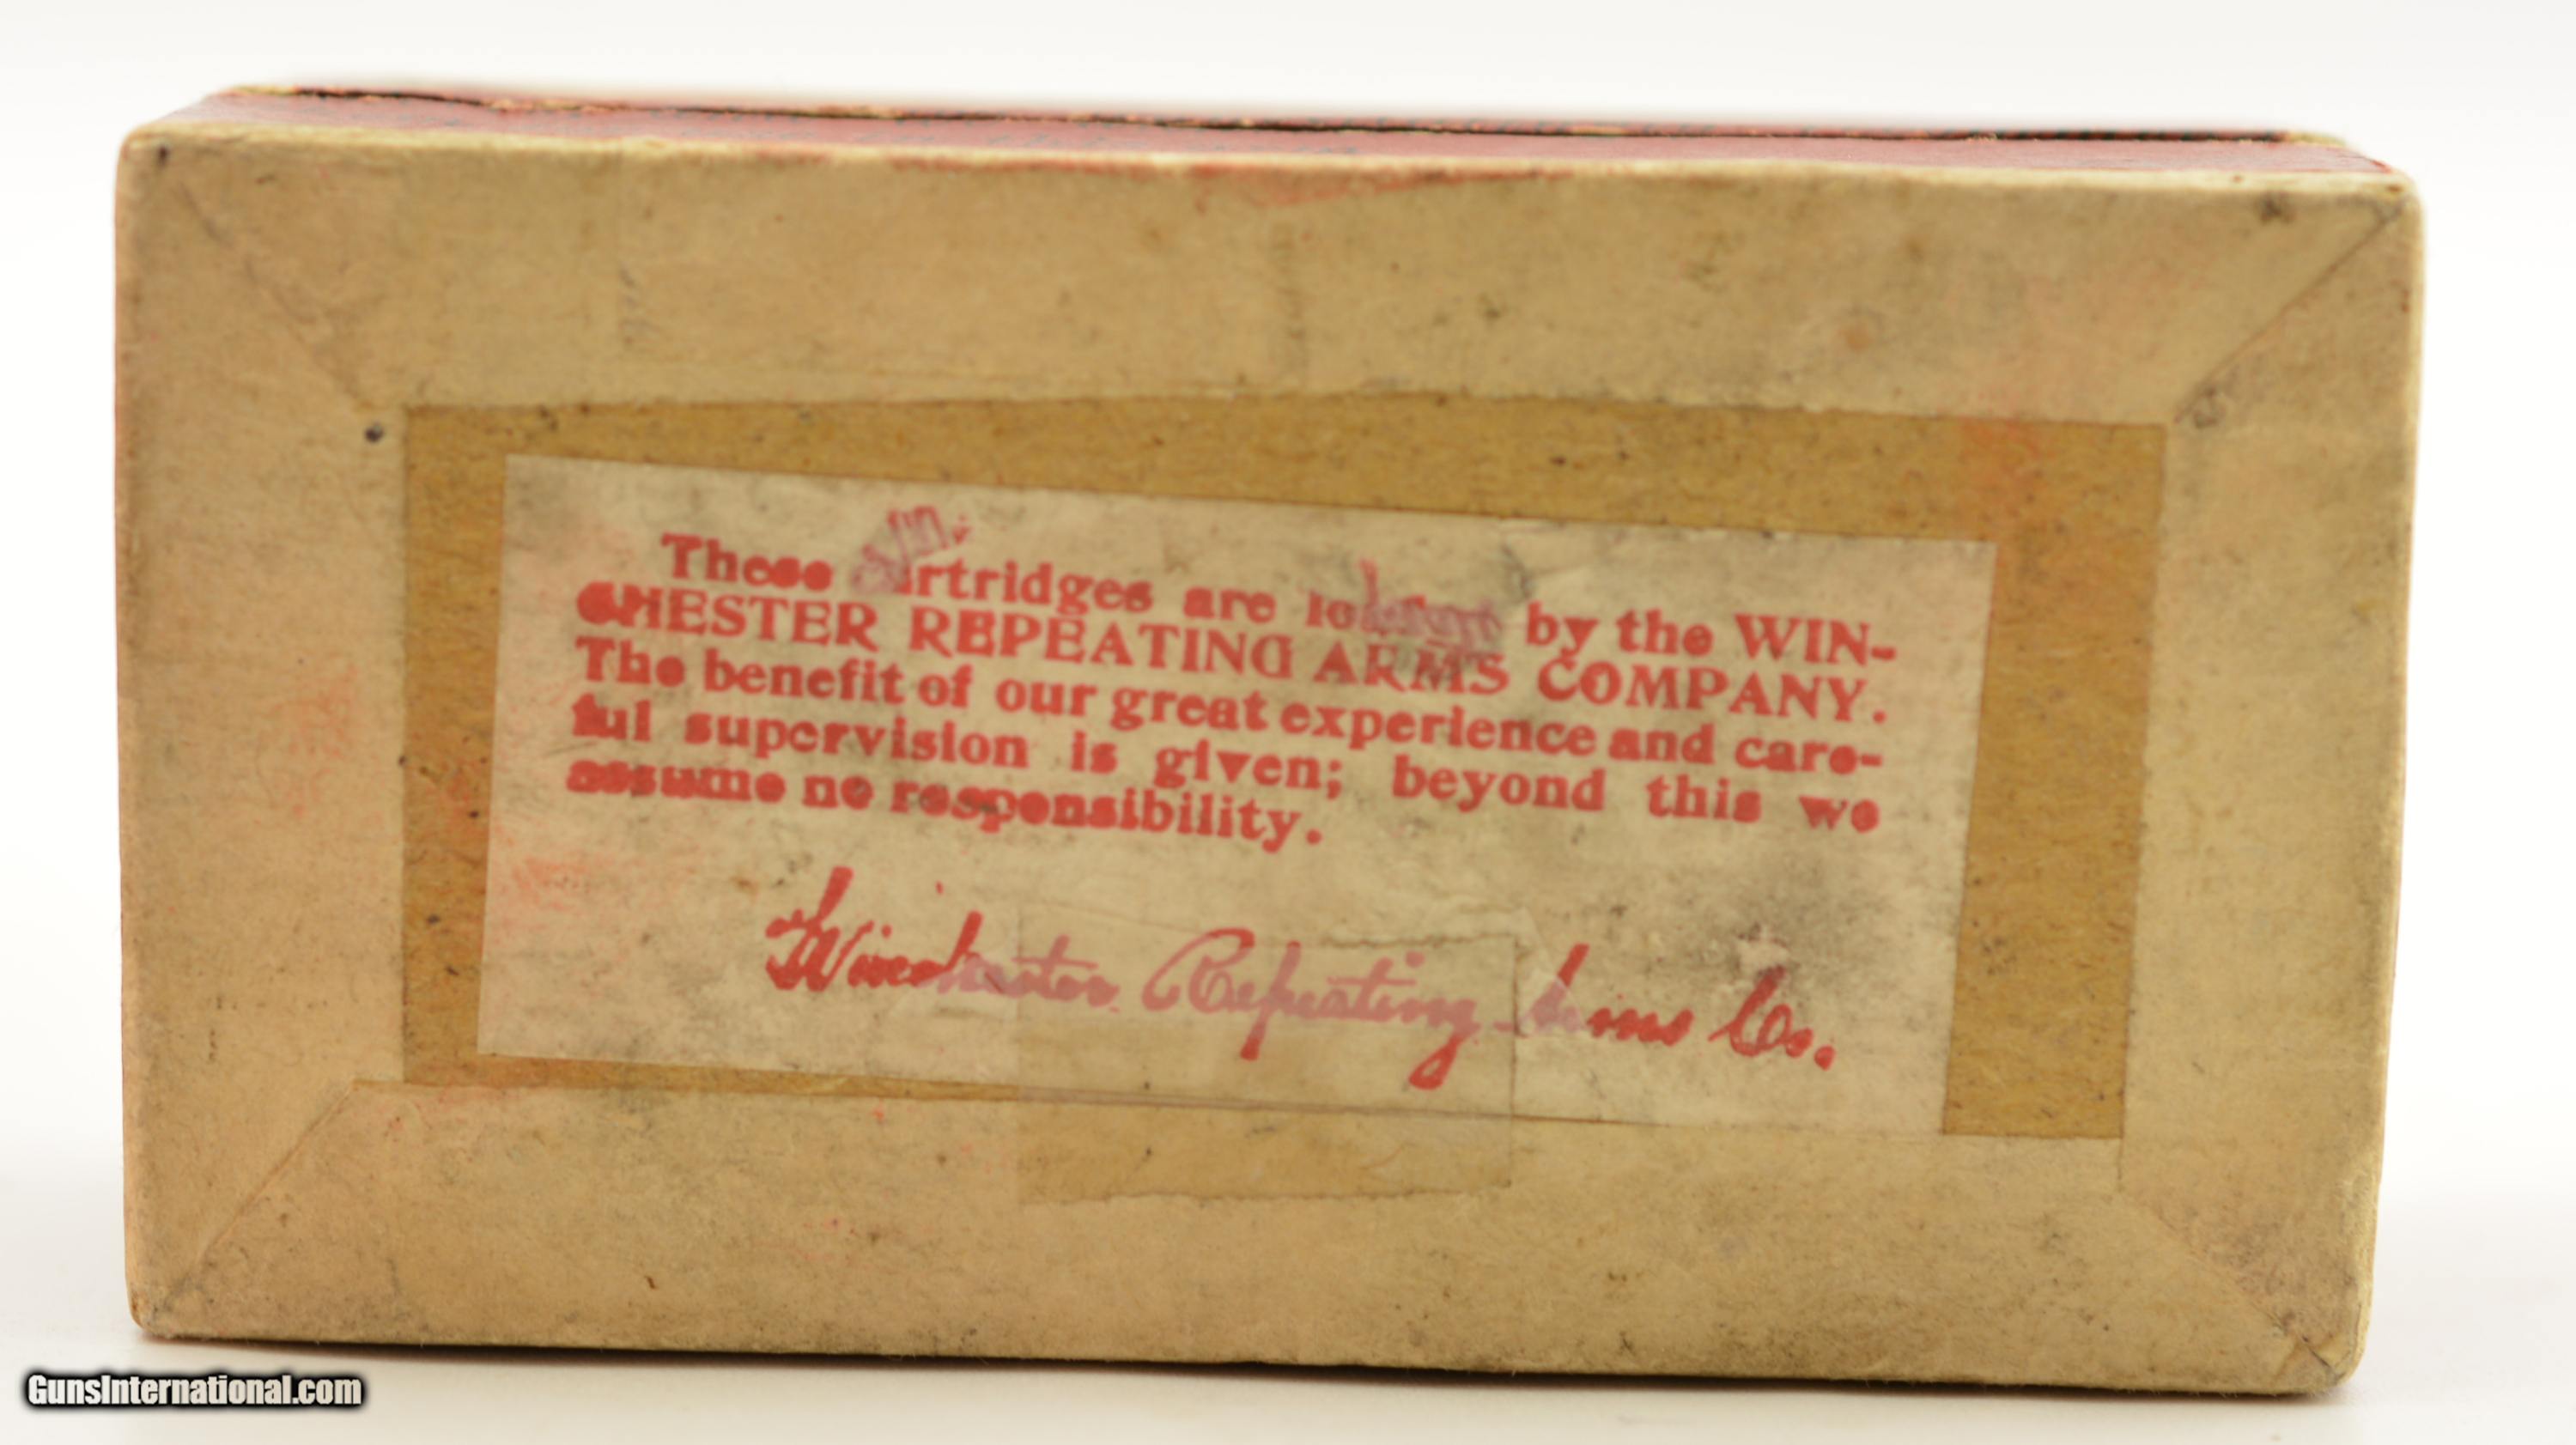 These cartridges are loaded by the WIN-
CHESTER REPEATING ARMS COMPANY.
The benefit of our great experience and care-
ful supervision is given; beyond this we
assume no responsibility.
Winchester Repeating Arms Co.
GunsInternational.com